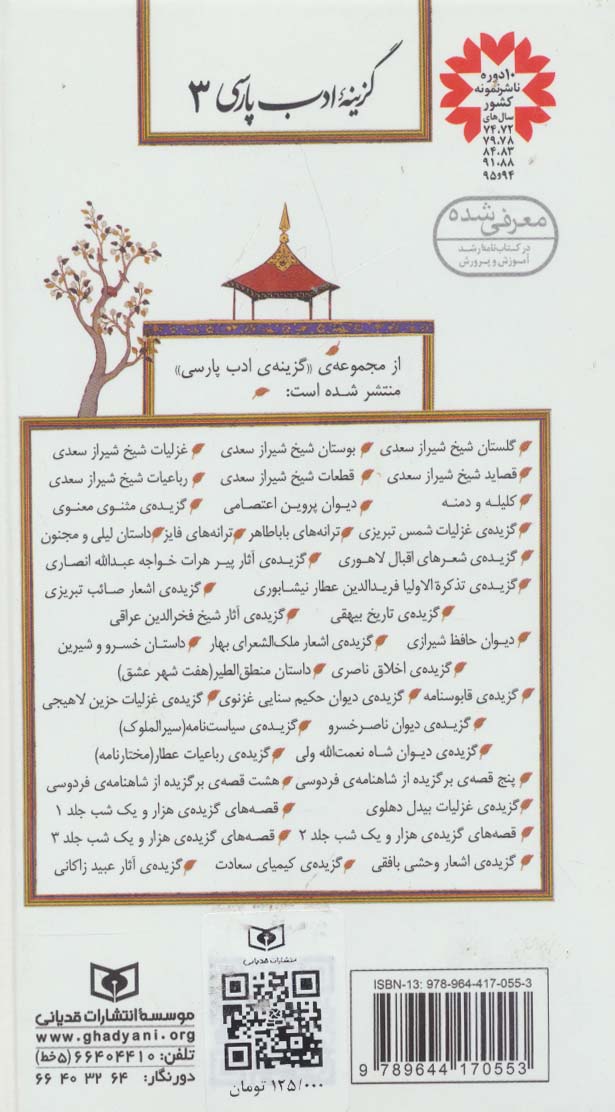 ۱۰ دوره
ناشر نمونه
کشور
سال‌های
۷۴.۷۲
۷۹.۷۸
۸۴.۸۳
۹۱.۸۸
۹۵و۹۴
گزینهٔ ادب پارسی ۳
معرفی شده
در کتاب‌نامهٔ رشد
آموزش و پرورش
از مجموعه‌ی «گزینه‌ی ادب پارسی»
منتشر شده است:
گلستان شیخ شیراز سعدی بوستان شیخ شیراز سعدی غزلیات شیخ شیراز سعدی
قصاید شیخ شیراز سعدی قطعات شیخ شیراز سعدی رباعیات شیخ شیراز سعدی
کلیله و دمنه دیوان پروین اعتصامی گزیده‌ی مثنوی معنوی
گزیده‌ی غزلیات شمس تبریزی ترانه‌های باباطاهر ترانه‌های فایز داستان لیلی و مجنون
گزیده‌ی شعرهای اقبال لاهوری گزیده‌ی آثار پیر هرات خواجه عبدالله انصاری
گزیده‌ی تذکرة الاولیا فریدالدین عطار نیشابوری گزیده‌ی اشعار صائب تبریزی
گزیده‌ی تاریخ بیهقی گزیده‌ی آثار شیخ فخرالدین عراقی
دیوان حافظ شیرازی گزیده‌ی اشعار ملک‌الشعرای بهار داستان خسرو و شیرین
گزیده‌ی اخلاق ناصری داستان منطق‌الطیر(هفت شهر عشق)
گزیده‌ی قابوسنامه گزیده‌ی دیوان حکیم سنایی غزنوی گزیده‌ی غزلیات حزین لاهیجی
گزیده‌ی دیوان ناصرخسرو گزیده‌ی سیاست‌نامه(سیرالملوک)
گزیده‌ی دیوان شاه نعمت‌الله ولی گزیده‌ی رباعیات عطار(مختارنامه)
پنج قصه‌ی برگزیده از شاهنامه‌ی فردوسی هشت قصه‌ی برگزیده از شاهنامه‌ی فردوسی
گزیده‌ی غزلیات بیدل دهلوی قصه‌های گزیده‌ی هزار و یک شب جلد ۱
قصه‌های گزیده‌ی هزار و یک شب جلد ۲ قصه‌های گزیده‌ی هزار و یک شب جلد ۳
گزیده‌ی اشعار وحشی بافقی گزیده‌ی کیمیای سعادت گزیده‌ی آثار عبید زاکانی
ISBN-13: 978-964-417-055-3
9 789644 170553
انتشارات قدیانی
۱۲۵/۰۰۰ تومان
موسسهٔ انتشارات قدیانی
www.ghadyani.org
تلفن: ۶۶۴۰۴۴۱۰ (۵خط)
دورنگار: ۶۶ ۴۰ ۳۲ ۶۴